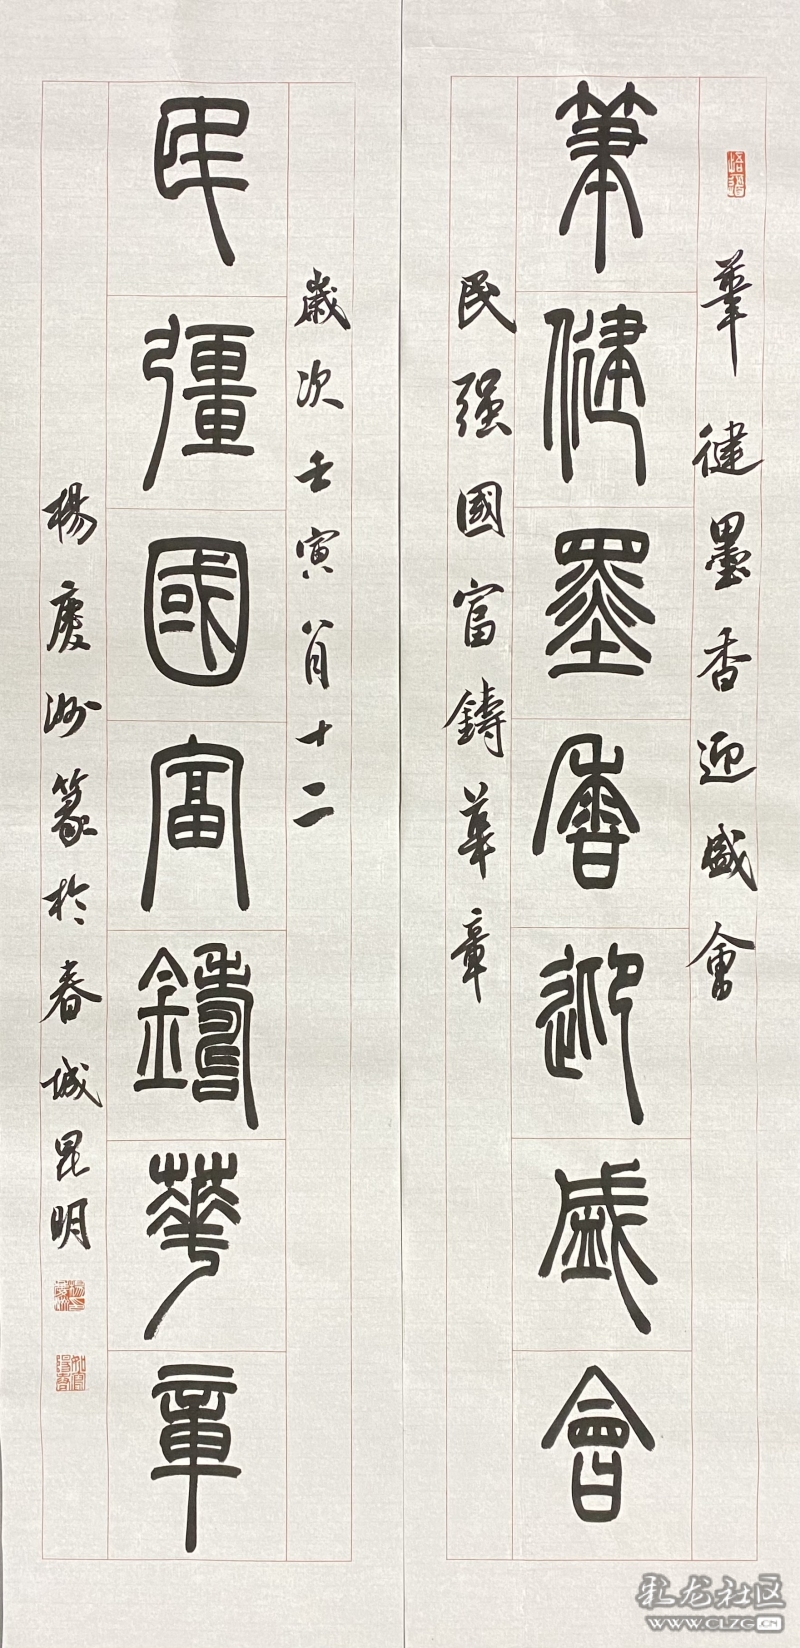 筆健墨香迎盛會
筆健墨香迎盛會
民强國富鑄華章
民彊國富鑄華章
歲次壬寅八月十二
楊慶洲篆於春城昆明
彩龙社区
WWW.CLZG.CN